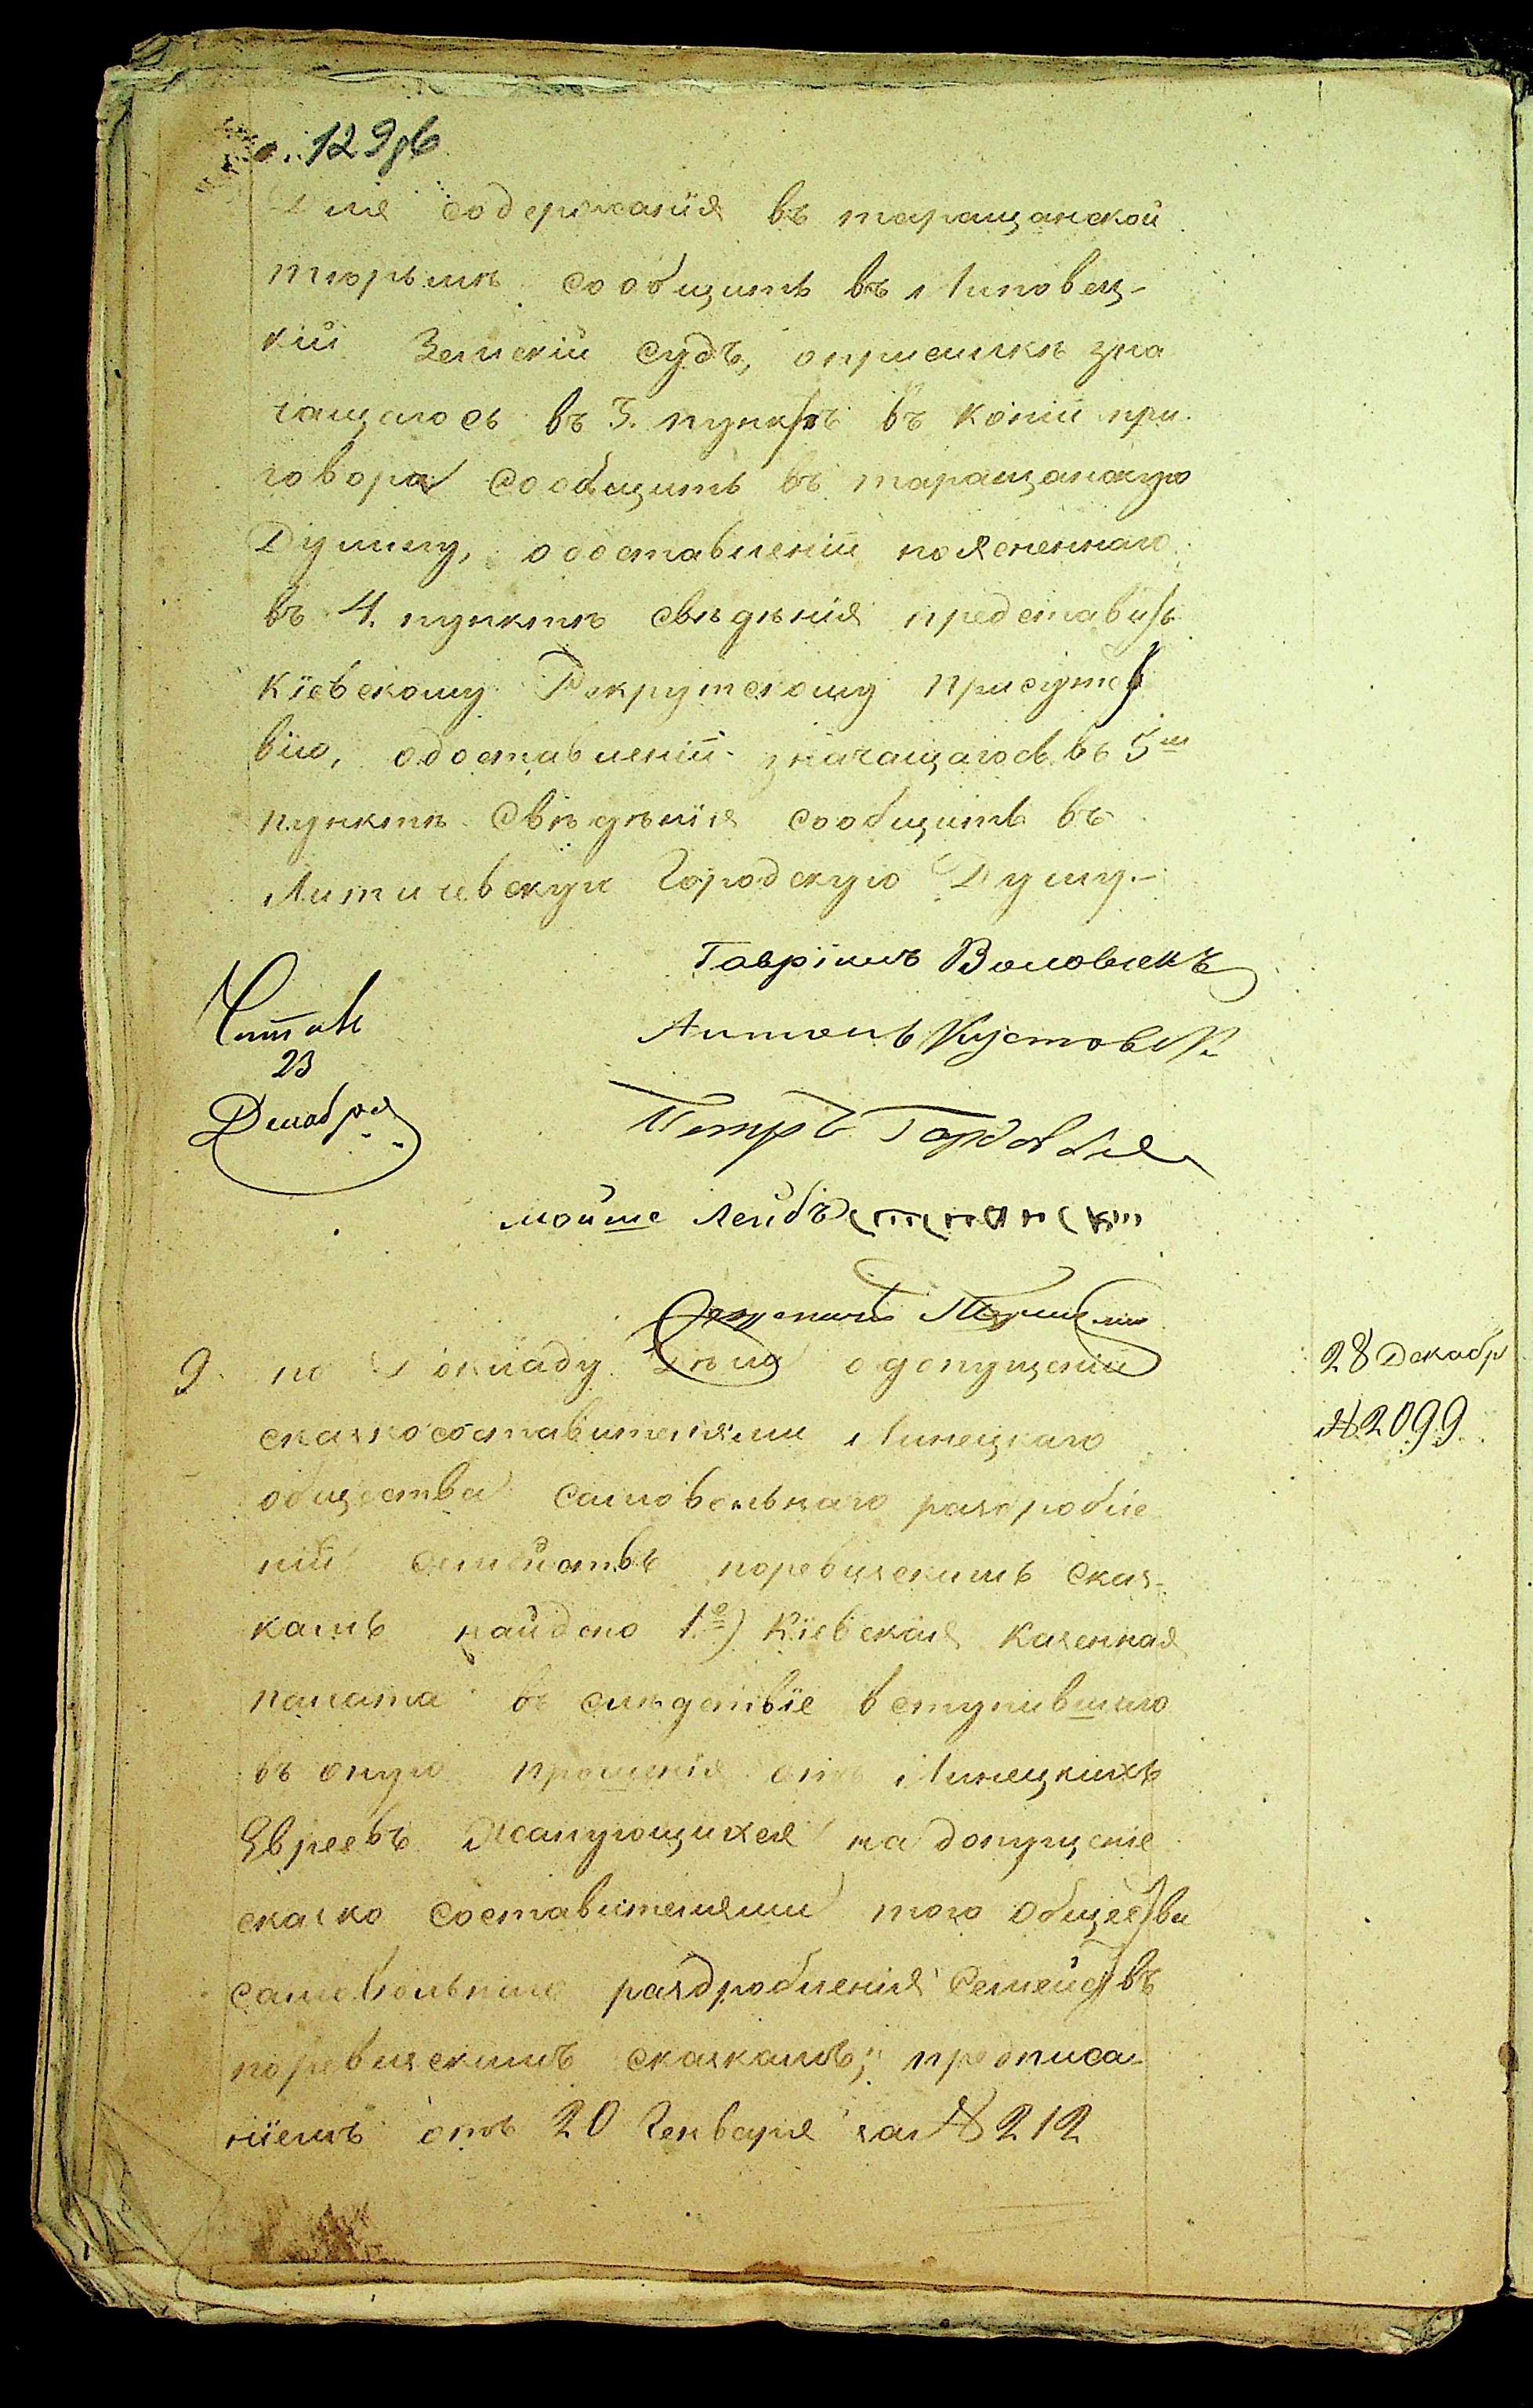 129об
Для содержанія въ таращанской
тюрьмѣ сообщить въ Липовец-
кій Земскій судъ, опрісылкѣ зна
чащагось въ 3. пунктѣ въ копіи при
говора сообщить въ таращанскую
Думму, одоставленіи поясненнаго
въ 4. пунктѣ свѣдѣнія представить
Кіевскому Рекрутскому присутст
вію, одоставленіи значащагось въ 5м
пунктѣ Свѣдѣнія сообщить въ
Литичевскую Городскую Думу.-
Гавріилъ Воловиекъ
Антонъ Кустовскі
Читалъ
23
Декабря
Петръ Гордовскі
мойше Лейбъ
9. по Докладу Дѣла одопущеніи
сказкосоставителями Линецкаго
общества самовольнаго раздробле
нія семействъ поревизскимъ сказ-
камъ найдено 1е) Кіевская Казенная
палата въ слѣдствіе вступившаго
въ оную прошенія отъ Линецкихъ
Евреевъ Жалующихся на допущеніе
сказко составителями того общества
самовольнаго раздробленія Семействъ
поревизскимъ сказкамъ, предписа-
ніемъ отъ 20 Генваря за № 212
28 Декабр
№ 2099